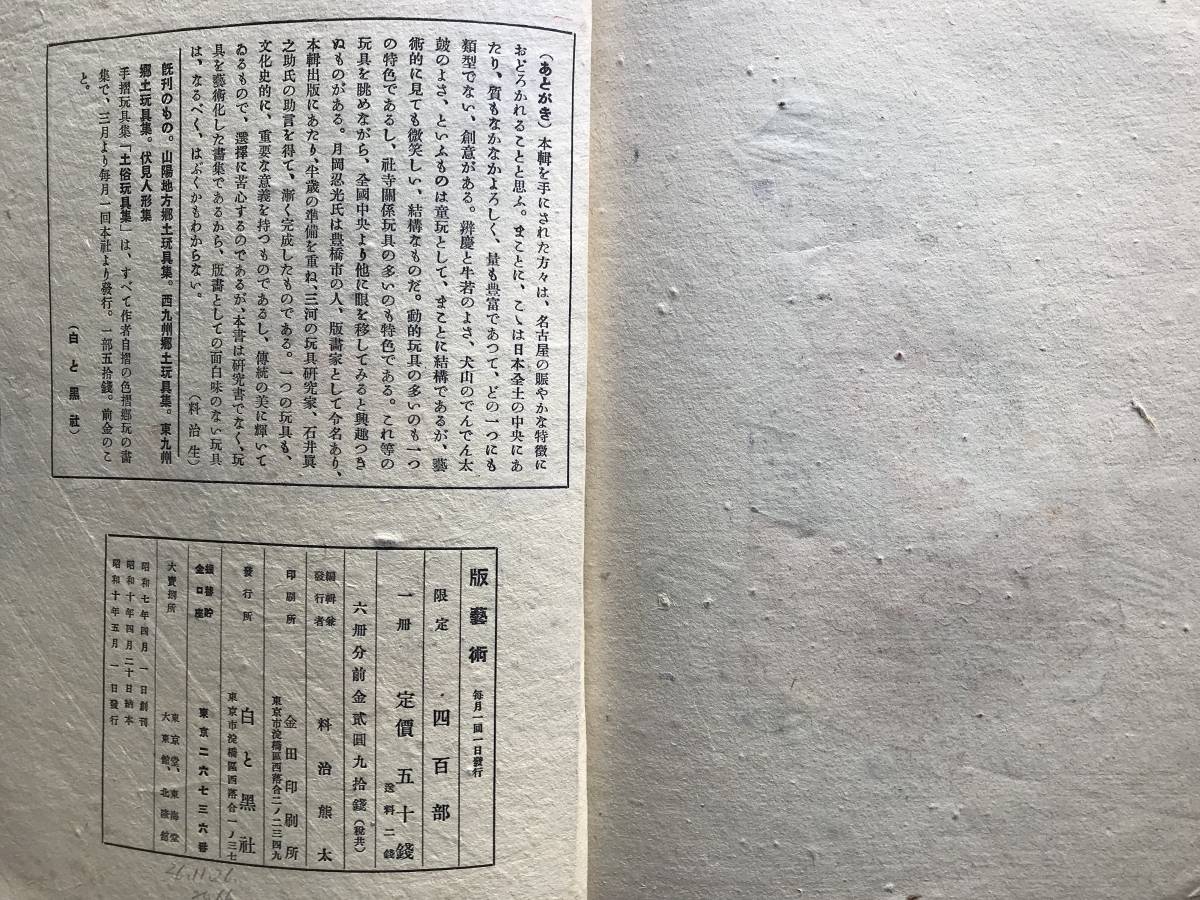 (あとがき)本輯を手にされた方々は、名古屋の賑やかな特徴に
おどろかれることと思ふ。まことに、こゝは日本全土の中央にあ
たり、質もなかなかよろしく、量も豊富であつて、どの一つにも
類型でない、創意がある。辨慶と牛若のよさ、犬山のでんでん太
皷のよさ、といふものは童玩として、まことに結構であるが、藝
術的に見ても微笑しい、結構なものだ。動的玩具の多いのも一つ
の特色であるし、社寺關係玩具の多いのも特色である。これ等の
玩具を眺めながら、全國中央より他に眼を移してみると興趣つき
ぬものがある。月岡忍光氏は豊橋市の人、版畫家として令名あり、
本輯出版にあたり、半歳の準備を重ね、三河の玩具研究家、石井眞
之助氏の助言を得て、漸く完成したものである。一つの玩具も、
文化史的に、重要な意義を持つものであるし、傳統の美に輝いて
ゐるもので、選擇に苦心するのであるが、本書は研究書でなく、玩
具を藝術化した畫集であるから、版畫としての面白味のない玩具
は、なるべく、はぶくかもわからない。
(料治生)
既刊のもの。山陽地方郷土玩具集。西九州郷土玩具集。東九州
郷土玩具集。伏見人形集
手摺玩具集「土俗玩具集」は、すべて作者自摺の色摺郷玩の畫
集で、三月より毎月一回本社より發行。一部五拾錢。前金のこ
と。
(白と黒社)
版藝術 毎月一回一日發行
限定・四百部
一册 定價五十錢 送料二錢
六册分前金貳圓九拾錢(税共)
編輯兼發行者 料治熊太
印刷所 金田印刷所
東京市淀橋區西落合二ノ二三四九
發行所 白と黒社
東京市淀橋區西落合一ノ三七
振替貯金口座 東京二六七三六番
大賣捌所 東京堂、東海堂
大東館、北隆館
昭和七年四月一日創刊
昭和十年四月二十日納本
昭和十年五月一日發行